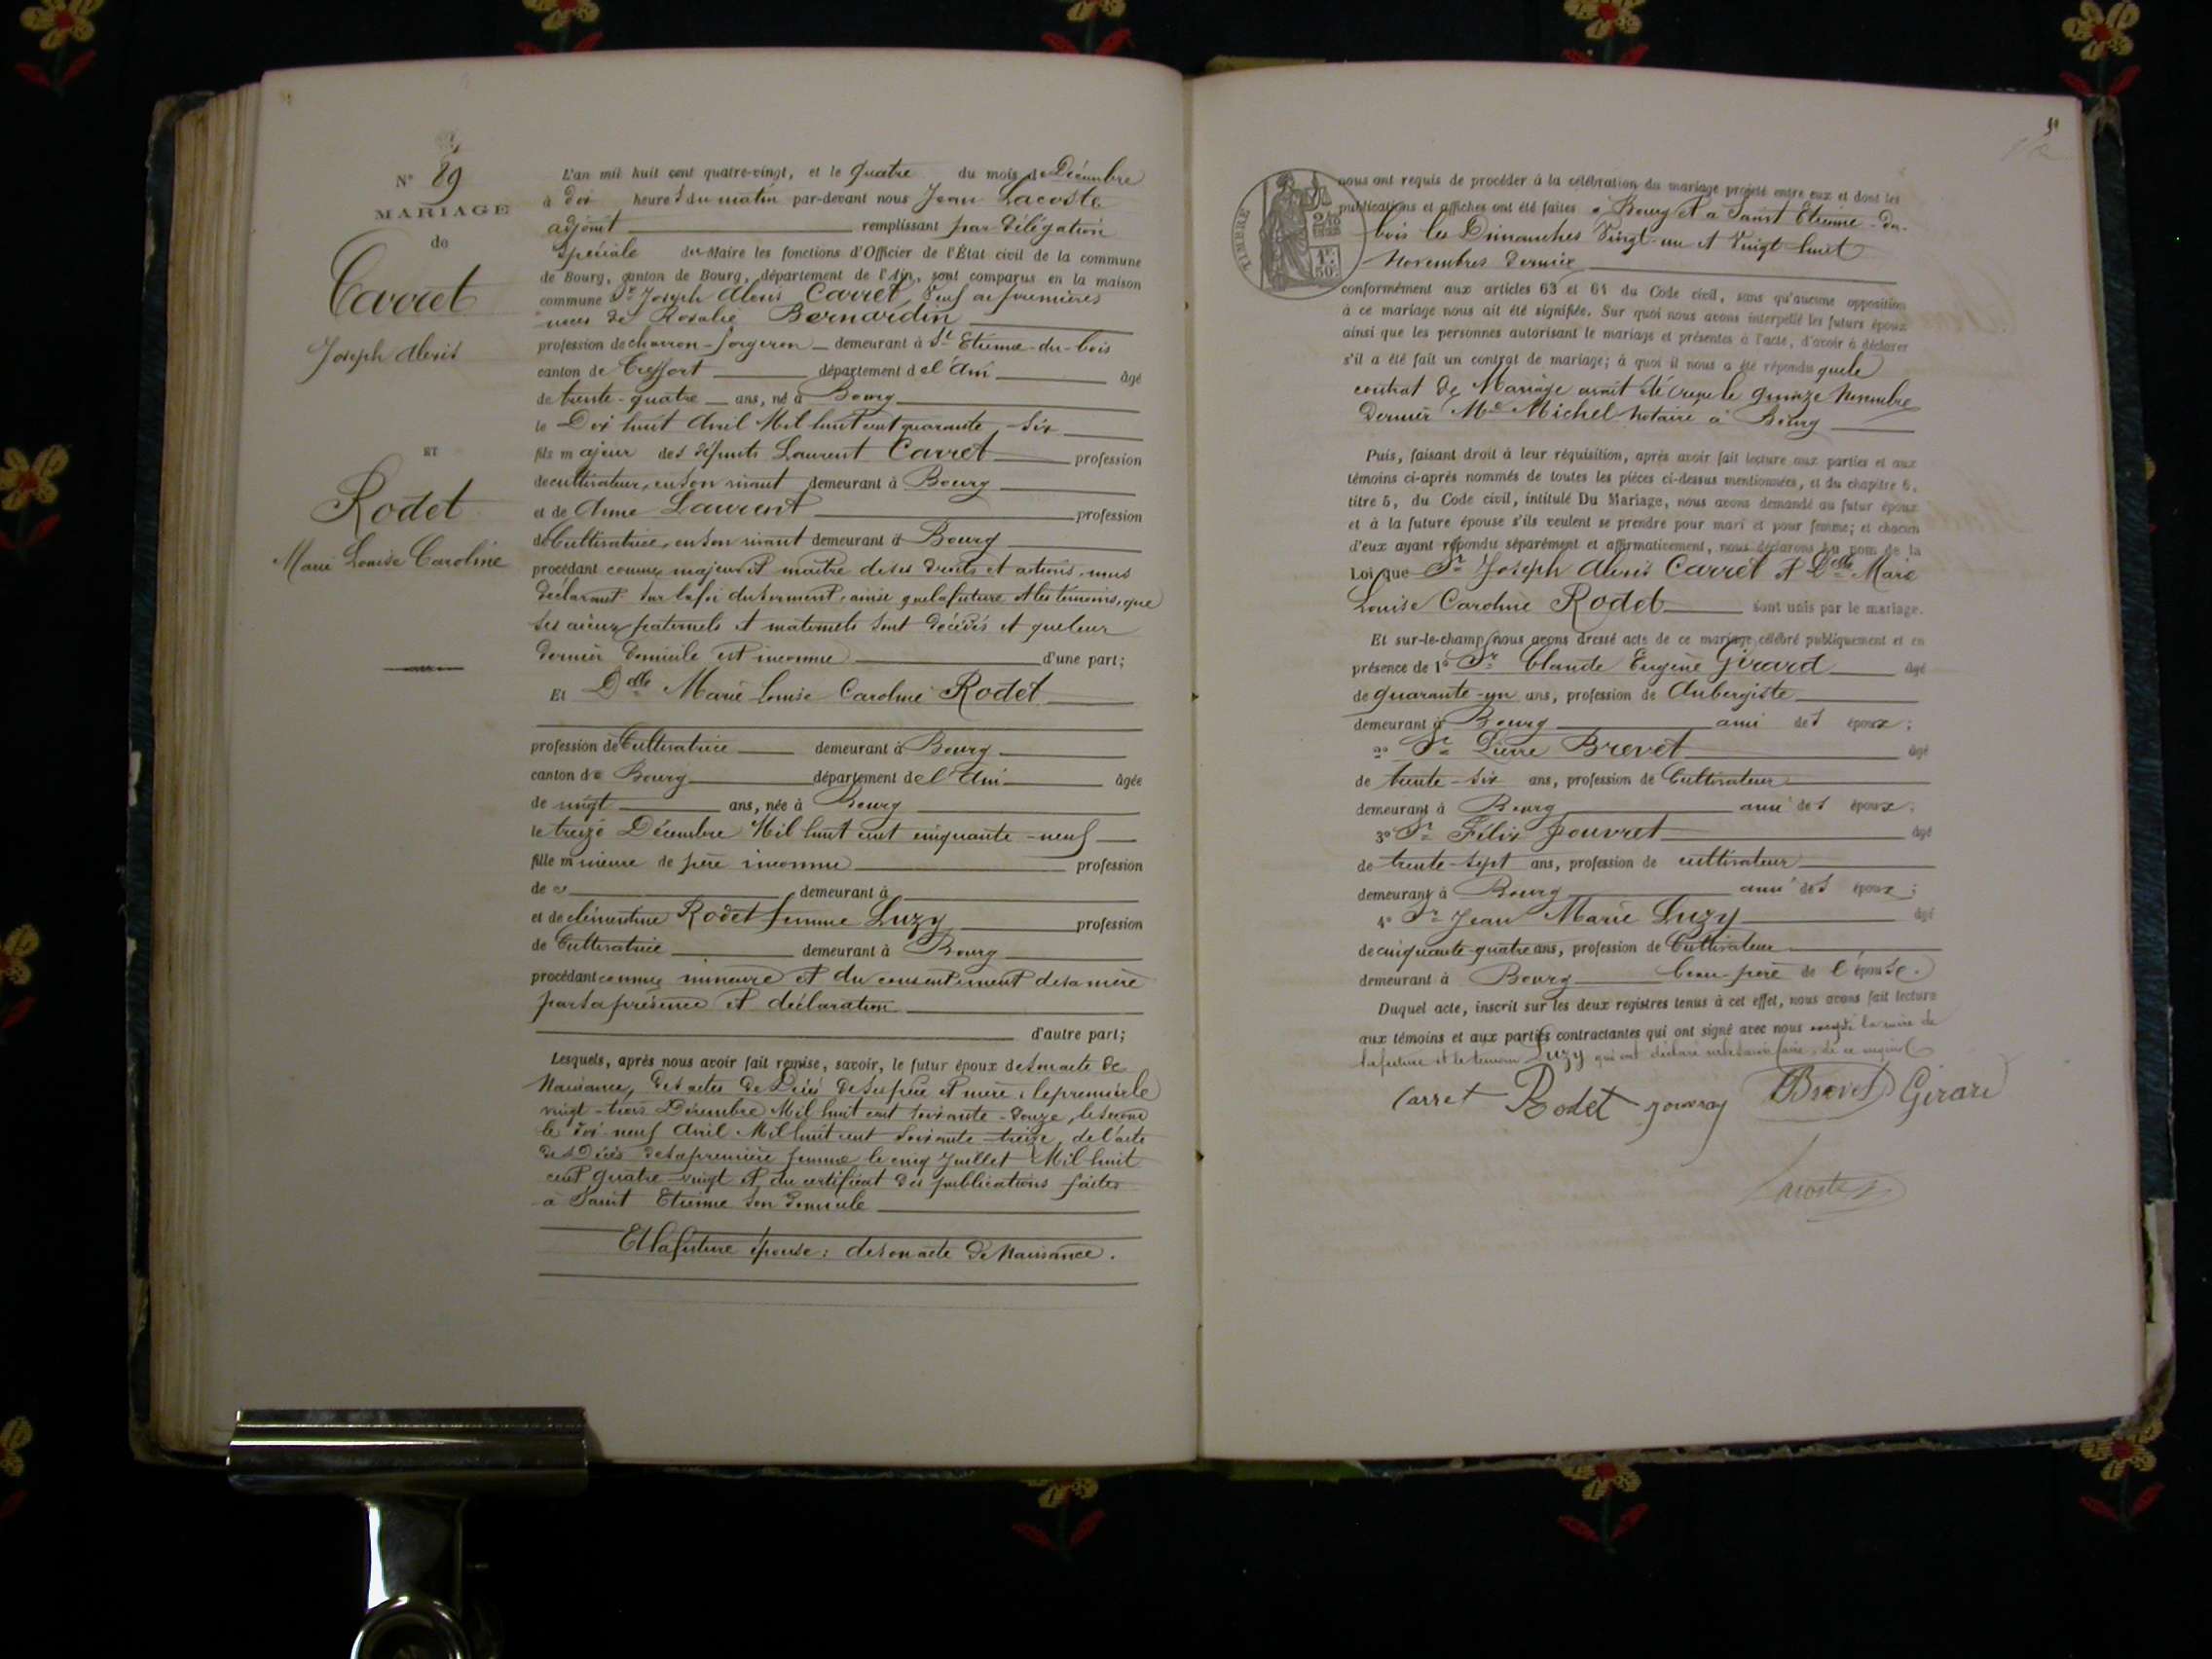 N° 89
MARIAGE
de
Carret
Joseph Alexis
ET
Rodet
Marie Louise Caroline
L'an mil huit cent quatre-vingt, et le quatre du mois de Décembre
à dix heures du matin par-devant nous Jean Lacoste
adjoint remplissant par délégation
spéciale du Maire les fonctions d'Officier de l'État civil de la commune
de Bourg, canton de Bourg, département de l'Ain, sont comparus en la maison
commune Sr Joseph Alexis Carret, veuf en premières
noces de Rosalie Bernardin
profession de charron-forgeron demeurant à St Etienne-du-bois
canton de Treffort département de l'Ain âgé
de trente-quatre ans, né à Bourg
le Dix huit Avril Mil huit cent quarante-six
fils majeur des défunts Laurent Carret profession
de cultivateur, en son vivant demeurant à Bourg
et de Anne Laurent profession
de Cultivatrice, en son vivant demeurant à Bourg
procédant comme majeur et maître de ses droits et actions, nous
déclarant sur la foi du serment, ainsi que la future et les témoins, que
ses aïeux paternels et maternels sont décédés et que leur
dernier domicile est inconnu d'une part;
Et Delle Marie Louise Caroline Rodet
profession de Cultivatrice demeurant à Bourg
canton de Bourg département de l'Ain âgée
de vingt ans, née à Bourg
le treize Décembre Mil huit cent cinquante-neuf
fille mineure de père inconnu profession
de demeurant à
et de clémentine Rodet femme Luzy profession
de Cultivatrice demeurant à Bourg
procédant comme mineure et du consentement de sa mère
par sa présence et déclaration
d'autre part;
Lesquels, après nous avoir fait remise, savoir, le futur époux de son acte de
Naissance, des actes de Décès de ses père et mère, le premier le
vingt-trois Décembre Mil huit cent soixante-douze, le second
le dix neuf Avril Mil huit cent soixante-treize, de l'acte
de Décès de sa première femme le cinq Juillet Mil huit
cent quatre-vingt et du certificat des publications faites
à Saint Etienne son domicile
Et la future épouse: de son acte de Naissance.
TIMBRE
2/10
1F.
50c
nous ont requis de procéder à la célébration du mariage projeté entre eux et dont les
publications et affiches ont été faites à Bourg et à Saint Etienne-du-
bois les Dimanches vingt-un et vingt-huit
Novembres dernier
conformément aux articles 63 et 64 du Code civil, sans qu'aucune opposition
à ce mariage nous ait été signifiée. Sur quoi nous avons interpellé les futurs époux
ainsi que les personnes autorisant le mariage et présentes à l'acte, d'avoir à déclarer
s'il a été fait un contrat de mariage; à quoi il nous a été répondu que le
contrat de Mariage avait été reçu le quinze Novembre
dernier Me Michel notaire à Bourg
Puis, faisant droit à leur réquisition, après avoir fait lecture aux parties et aux
témoins ci-après nommés de toutes les pièces ci-dessus mentionnées, et du chapitre 6,
titre 5, du Code civil, intitulé Du Mariage, nous avons demandé au futur époux
et à la future épouse s'ils veulent se prendre pour mari et pour femme; et chacun
d'eux ayant répondu séparément et affirmativement, nous déclarons au nom de la
Loi que Sr Joseph Alexis Carret et Delle Marie
Louise Caroline Rodet sont unis par le mariage.
Et sur-le-champ nous avons dressé acte de ce mariage célébré publiquement et en
présence de 1° Sr Claude Eugène Girard âgé
de quarante-un ans, profession de Aubergiste
demeurant à Bourg ami des époux;
2° Sr Pierre Brevet âgé
de trente-six ans, profession de Cultivateur
demeurant à Bourg ami des époux;
3° Sr Félix Jouvret âgé
de trente-sept ans, profession de cultivateur
demeurant à Bourg ami des époux;
4° Sr Jean Marie Luzy âgé
de cinquante-quatre ans, profession de Cultivateur
demeurant à Bourg beau-père de l'épouse.
Duquel acte, inscrit sur les deux registres tenus à cet effet, nous avons fait lecture
aux témoins et aux parties contractantes qui ont signé avec nous excepté la mère de
la future et le témoin Luzy qui ont déclaré ne le savoir faire, de ce requis
Carret Rodet Jouvray Brevet Girard
Lacoste